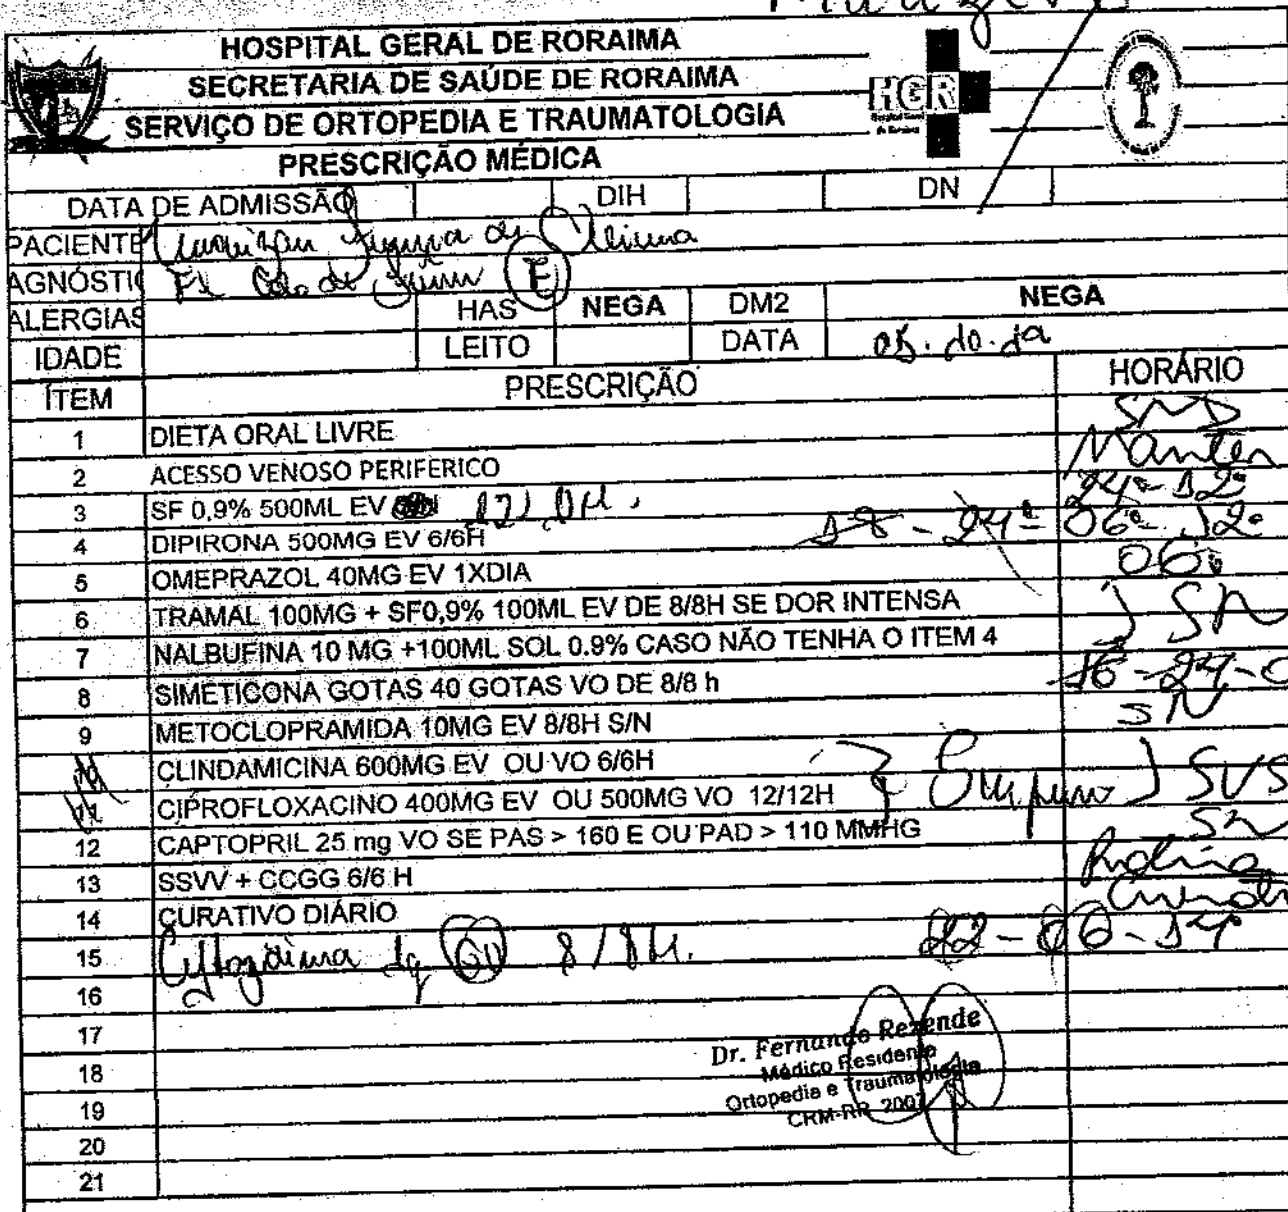 HOSPITAL GERAL DE RORAIMA
SECRETARIA DE SAÚDE DE RORAIMA
SERVIÇO DE ORTOPEDIA E TRAUMATOLOGIA
PRESCRIÇÃO MÉDICA
HGR
DATA DE ADMISSÃO DIH DN
PACIENTE de Oliveira
AGNÓSTI Fx Colo de Fêmur E
ALERGIAS HAS NEGA DM2 NEGA
IDADE LEITO DATA 05.10.19
ÍTEM PRESCRIÇÃO HORÁRIO
1 DIETA ORAL LIVRE SND
2 ACESSO VENOSO PERIFERICO Manter
3 SF 0,9% 500ML EV 12/12H. 24º 12º
4 DIPIRONA 500MG EV 6/6H 18 - 24º 06º 12º
5 OMEPRAZOL 40MG EV 1XDIA 06º
6 TRAMAL 100MG + SF0,9% 100ML EV DE 8/8H SE DOR INTENSA
7 NALBUFINA 10 MG +100ML SOL 0.9% CASO NÃO TENHA O ITEM 4 } SN
8 SIMETICONA GOTAS 40 GOTAS VO DE 8/8 h 16-24-0
9 METOCLOPRAMIDA 10MG EV 8/8H S/N SN
10 CLINDAMICINA 600MG EV OU VO 6/6H
11 CIPROFLOXACINO 400MG EV OU 500MG VO 12/12H } Suspenso } SVS
12 CAPTOPRIL 25 mg VO SE PAS > 160 E OU PAD > 110 MMHG SN
13 SSVV + CCGG 6/6 H Rotina
14 CURATIVO DIÁRIO
15 1g EV 8/8H. 22-06-14º
16
17
Dr. Fernando Rezende
18
Médico Residente
19
Ortopedia e Traumatologia
CRM-RR 2007
20
21